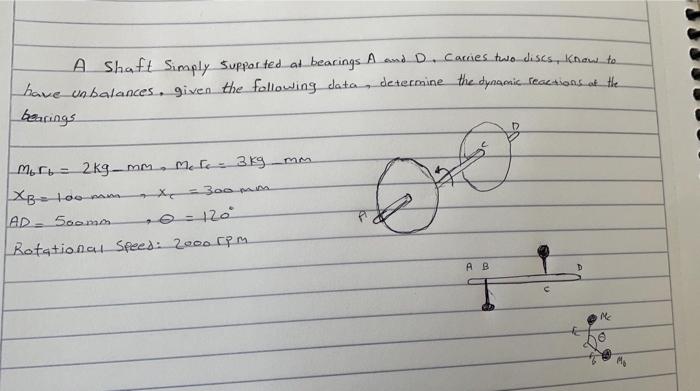 A Shaft Simply Supported at bearings A and D. Carries two discs, Know to
have unbalances. given the following data, determine the dynamic reactions at the
bearings
Mb rb = 2kg-mm, Mc rc = 3kg-mm
XB = 100 mm, Xc = 300 mm
AD = 500mm, θ = 120°
Rotational Speed: 2000 rpm
D
C
A
A B D
C
Mc
rc
θ
rb
Mb